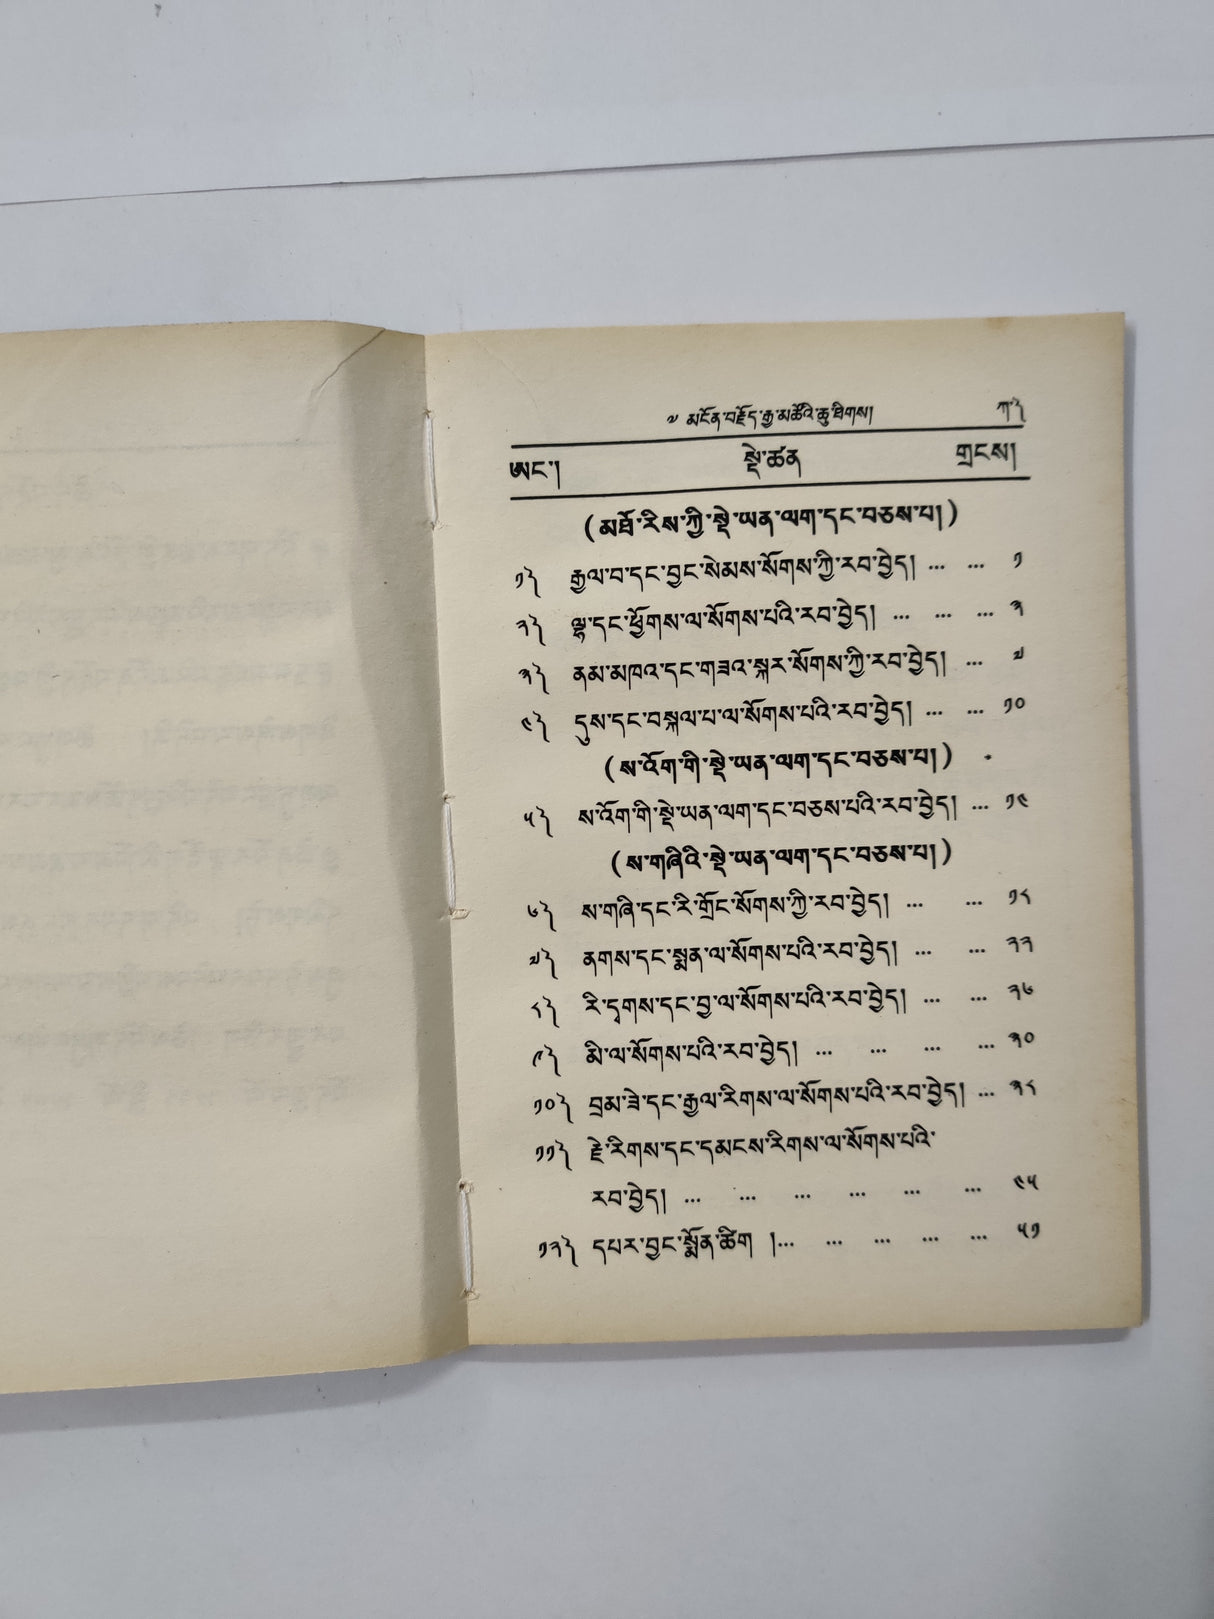 ༧ མངོན་བརྗོད་རྒྱ་མཚོའི་ཆུ་ཐིགས། ཀ༽
ཨང་། སྡེ་ཚན གྲངས།
(མཐོ་རིས་ཀྱི་སྡེ་ཡན་ལག་དང་བཅས་པ།)
༡༽ རྒྱལ་བ་དང་བྱང་སེམས་སོགས་ཀྱི་རབ་བྱེད། … … ༡
༢༽ ལྷ་དང་ཕྱོགས་ལ་སོགས་པའི་རབ་བྱེད། … … … ༣
༣༽ ནམ་མཁའ་དང་གཟའ་སྐར་སོགས་ཀྱི་རབ་བྱེད། … ༧
༤༽ དུས་དང་བསྐལ་པ་ལ་སོགས་པའི་རབ་བྱེད། … … ༡༠
(ས་འོག་གི་སྡེ་ཡན་ལག་དང་བཅས་པ།)
༥༽ ས་འོག་གི་སྡེ་ཡན་ལག་དང་བཅས་པའི་རབ་བྱེད། … ༡༤
(ས་གཞིའི་སྡེ་ཡན་ལག་དང་བཅས་པ།)
༦༽ ས་གཞི་དང་རི་གྲོང་སོགས་ཀྱི་རབ་བྱེད། … … ༡༨
༧༽ ནགས་དང་སྨན་ལ་སོགས་པའི་རབ་བྱེད། … … ༢༢
༨༽ རི་དྭགས་དང་བྱ་ལ་སོགས་པའི་རབ་བྱེད། … … ༢༦
༩༽ མི་ལ་སོགས་པའི་རབ་བྱེད། … … … … ༣༠
༡༠༽ བྲམ་ཟེ་དང་རྒྱལ་རིགས་ལ་སོགས་པའི་རབ་བྱེད། … ༣༨
༡༡༽ རྗེ་རིགས་དང་དམངས་རིགས་ལ་སོགས་པའི་
རབ་བྱེད། … … … … … … ༤༥
༡༢༽ དཔར་བྱང་སྨོན་ཚིག །… … … … … ༥༡